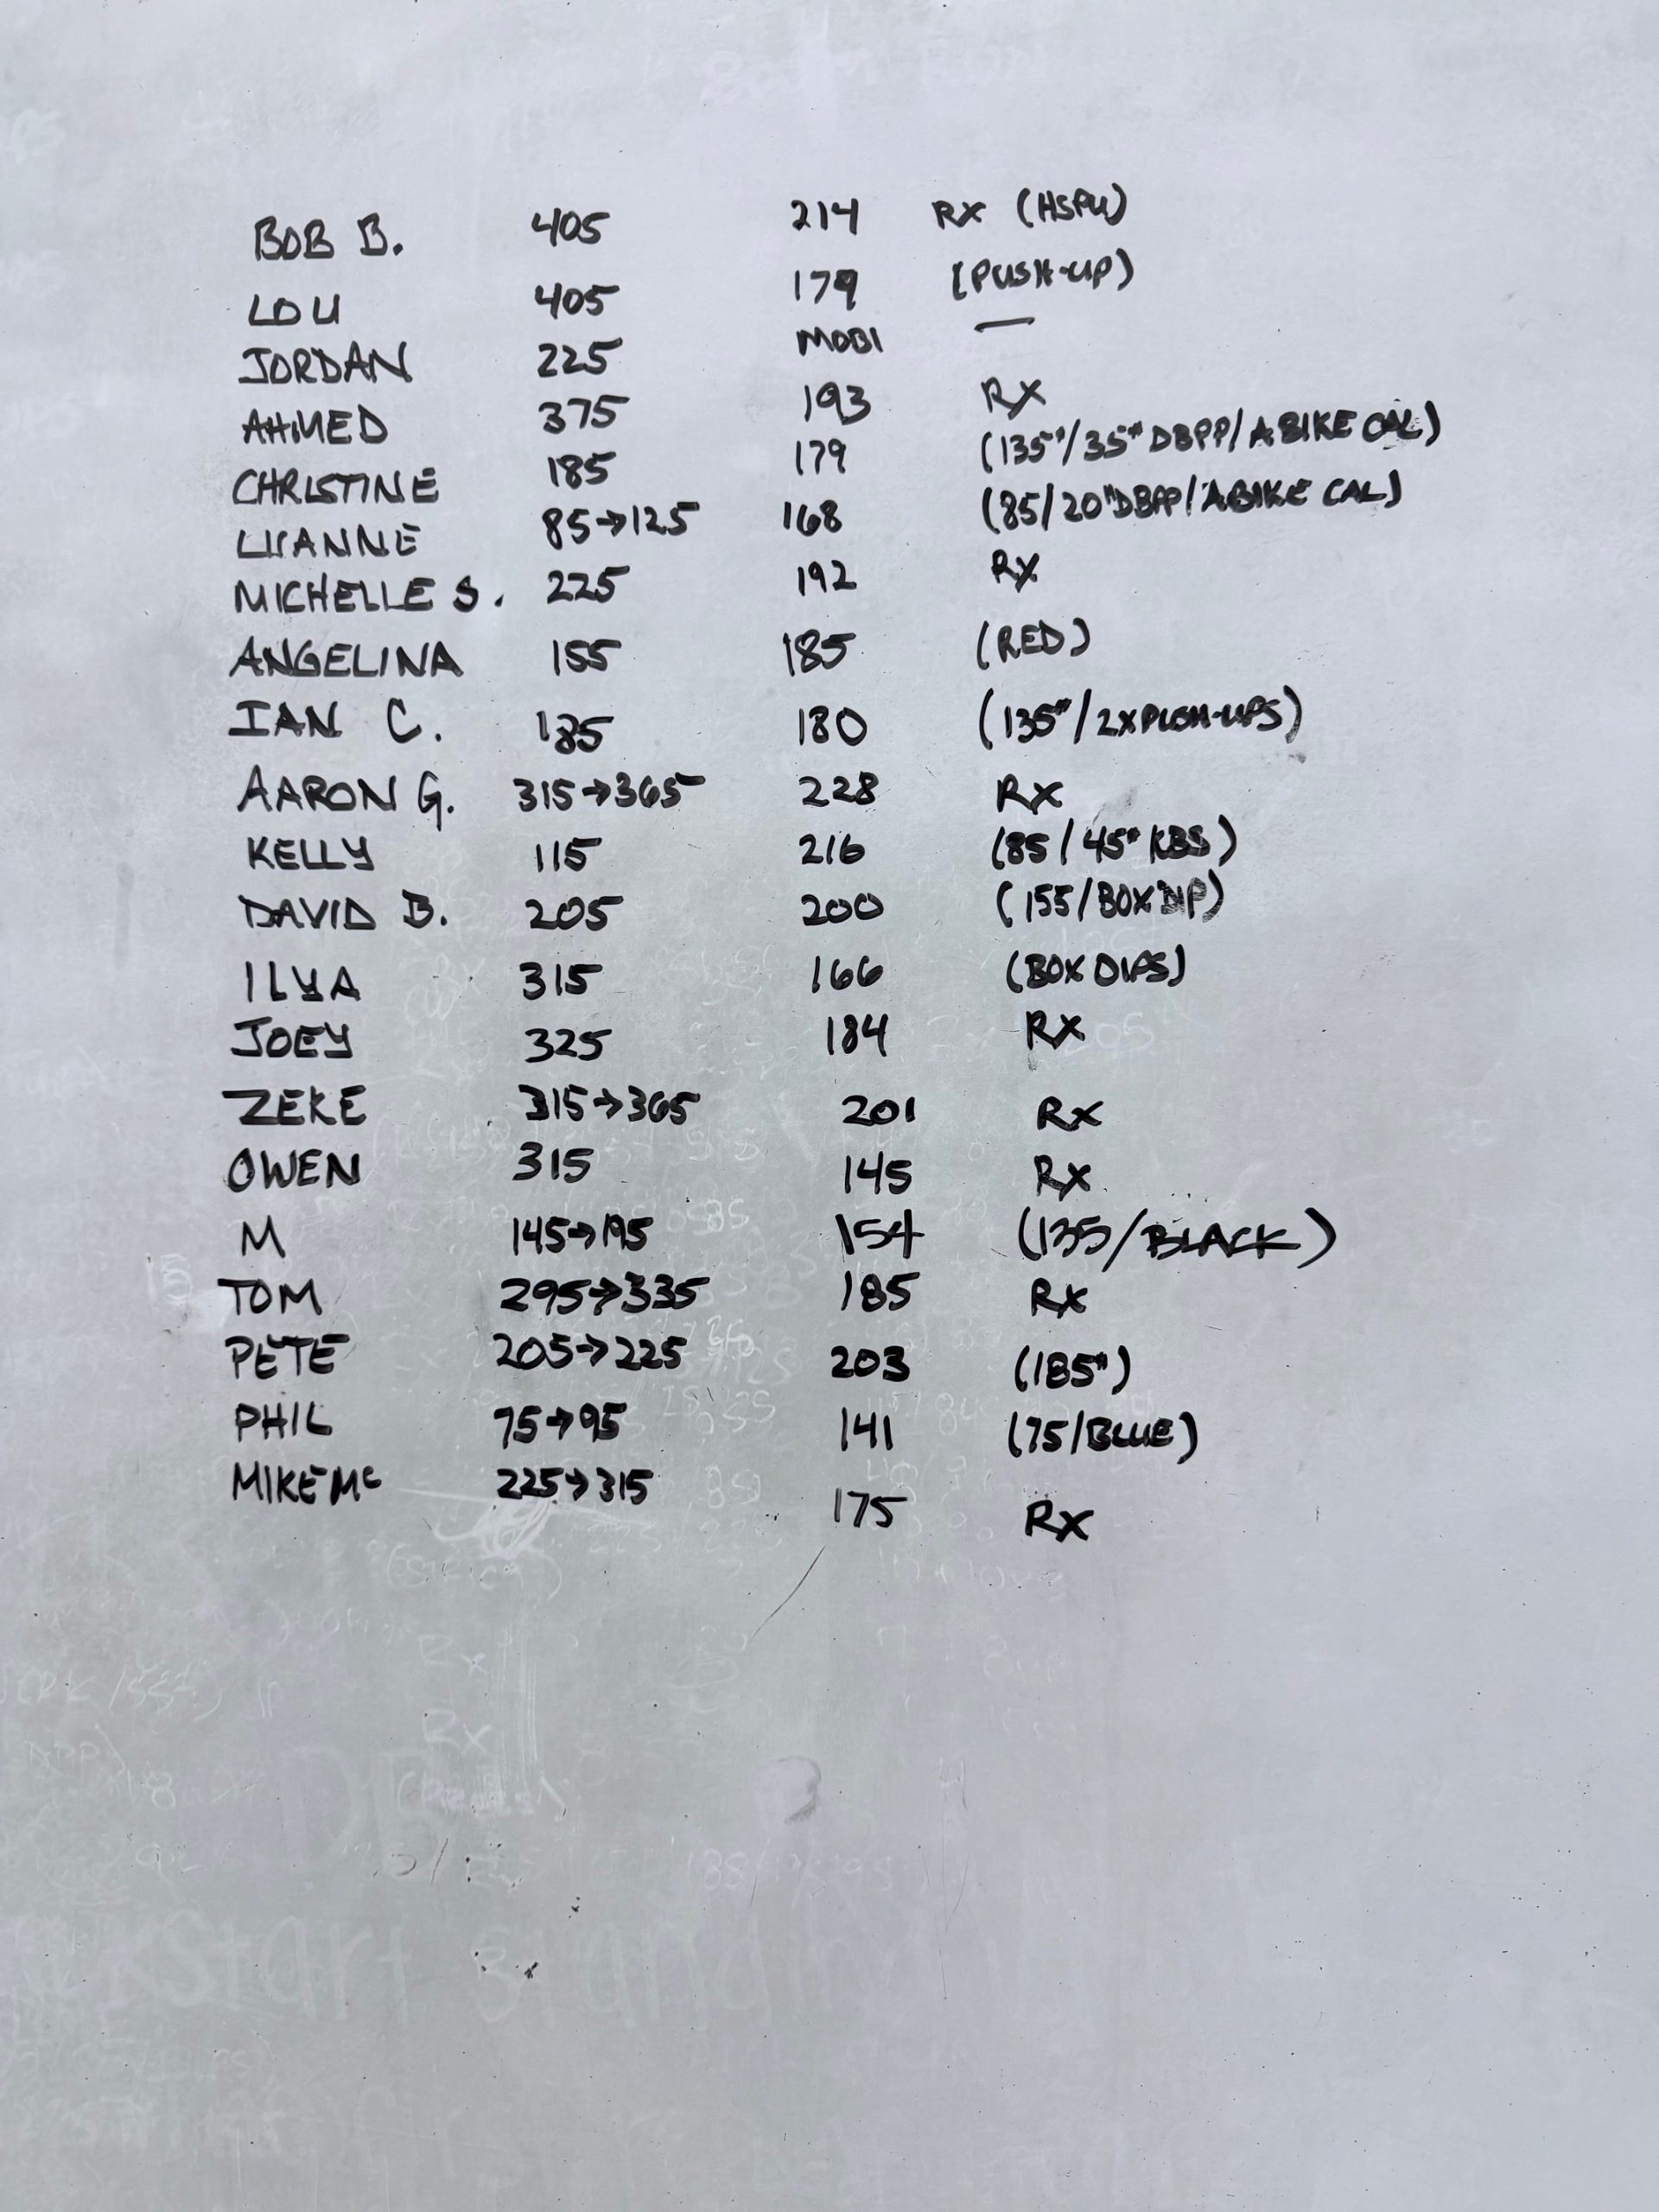 BOB B. 405 214 RX (HSPU)
LOU 405 179 (PUSH-UP)
JORDAN 225 MOBI —
AHMED 375 193 RX
CHRISTINE 185 179 (135#/35# DBPP/A BIKE CAL)
LUANNE 85→125 168 (85/20#DBPP/A BIKE CAL)
MICHELLE S. 225 192 RX
ANGELINA 155 185 (RED)
IAN C. 185 180 (135#/2XPUSH-UPS)
AARON G. 315→365 228 RX
KELLY 115 216 (85/45# KBS)
DAVID B. 205 200 (155/BOX DIP)
ILYA 315 166 (BOX DIPS)
JOEY 325 184 RX
ZEKE 315→365 201 RX
OWEN 315 145 RX
M 145→195 154 (135/BLACK)
TOM 295→335 185 RX
PETE 205→225 203 (185#)
PHIL 75→95 141 (75/BLUE)
MIKE MC 225→315 175 RX